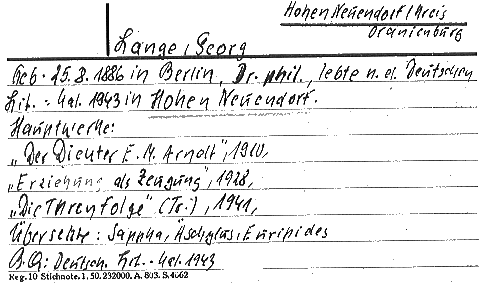 Hohen Neuendorf/Kreis
Oranienburg
Lange, Georg
Geb. 25.8.1886 in Berlin, Dr. phil., lebte n. d. Deutschen
Lit.-Kal. 1943 in Hohen Neuendorf.
Hauptwerke:
„Der Dichter E. M. Arndt", 1910,
„Erziehung als Zeugung", 1928,
„Die Thronfolge" (Tr.), 1941,
Übersetzte: Sappho, Äschylus, Euripides
B.Q.: Deutsch. Lit.-Kal. 1943
Reg. 10 Stichnote. 1, 50. 232000. A. 803. S. 4662